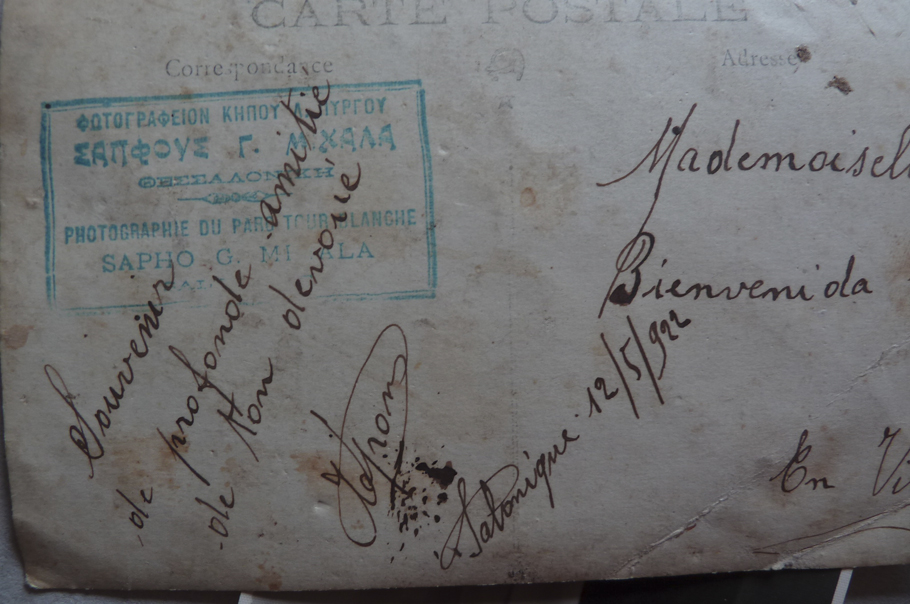 CARTE POSTALE
Correspondance
Adresse
ΦΩΤΟΓΡΑΦΕΙΟΝ ΚΗΠΟΥ Λ. ΠΥΡΓΟΥ
ΣΑΠΦΟΥΣ Γ. ΜΙΧΑΛΑ
ΘΕΣΣΑΛΟΝΙΚΗ
PHOTOGRAPHIE DU PARC TOUR BLANCHE
SAPHO G. MI ALA
Souvenir
de profonde amitie
de ton devoué
Salonique 12/5/922
Mademoisell
Bienvenida
En Vi